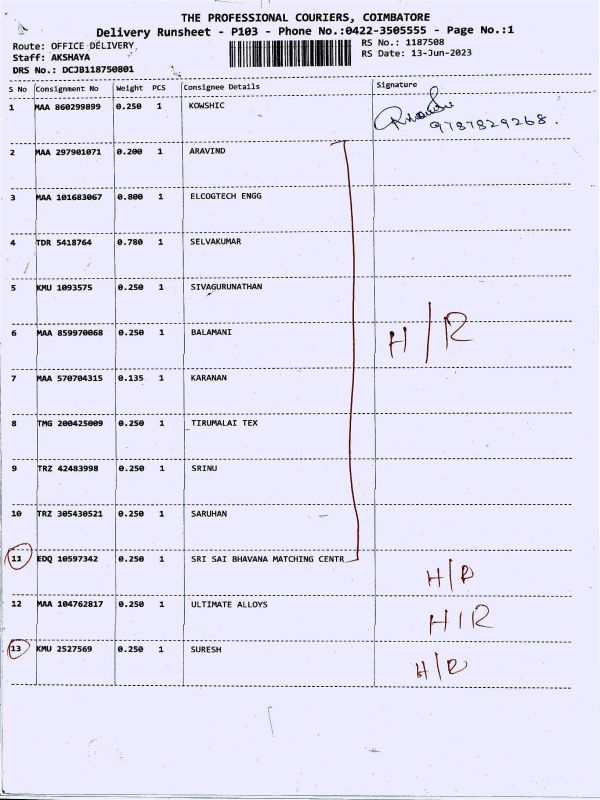 THE PROFESSIONAL COURIERS, COIMBATORE
Delivery Runsheet - P103 - Phone No.:0422-3505555 - Page No.:1
Route: OFFICE DELIVERY
RS No.: 1187508
Staff: AKSHAYA
RS Date: 13-Jun-2023
DRS No.: DCJB118750801
S No Consignment No Weight PCS Consignee Details Signature
1 MAA 860299899 0.250 1 KOWSHIC
9787829268.
2 MAA 297901071 0.200 1 ARAVIND
3 MAA 101683067 0.800 1 ELCOGTECH ENGG
4 TDR 5418764 0.780 1 SELVAKUMAR
5 KMU 1093575 0.250 1 SIVAGURUNATHAN
6 MAA 859970068 0.250 1 BALAMANI H/R
7 MAA 570704315 0.135 1 KARANAN
8 TMG 200425009 0.250 1 TIRUMALAI TEX
9 TRZ 42483998 0.250 1 SRINU
10 TRZ 305430521 0.250 1 SARUHAN
11 EDQ 10597342 0.250 1 SRI SAI BHAVANA MATCHING CENTR H/R
12 MAA 104762817 0.250 1 ULTIMATE ALLOYS H/R
13 KMU 2527569 0.250 1 SURESH H/R